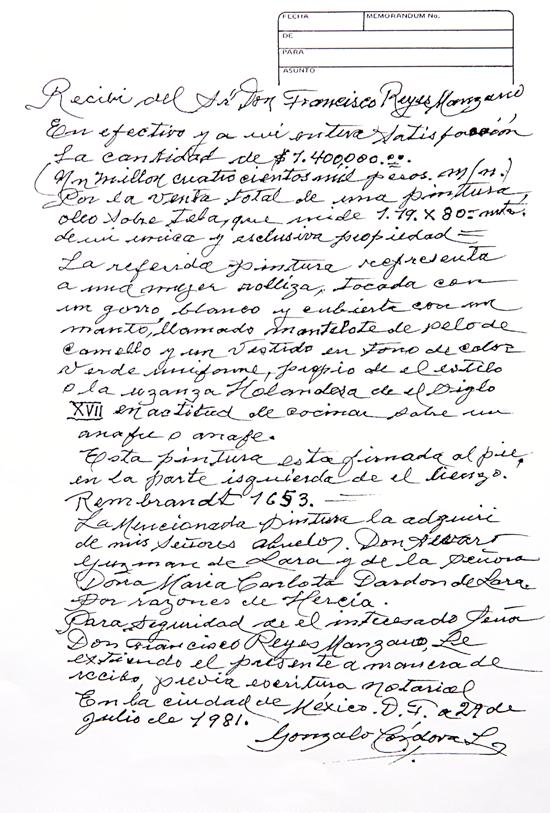 FECHA MEMORANDUM No.
DE
PARA
ASUNTO
Recibi del Sr Don Francisco Reyes Manzano
En efectivo y a mi entera satisfacción
La cantidad de $1.400,000.00.
(Un millon cuatrocientos mil pesos. m/n.)
Por la venta total de una pintura,
oleo sobre tela, que mide 1.19. X 80= mts.
de mi unica y esclusiva propiedad=
La referida pintura representa
a una mujer rolliza, tocada con
un gorro, blanco y cubierta con un
manto, llamado mantelote de pelo de
camello y un vestido en tono de color
verde uniforme, propio de el estilo
o la uzanza Holandesa de el Siglo
XVII en actitud de cocinar sobre un
anafre o anafe.
Esta pintura esta firmada al pie,
en la parte isquierda de el lienzo.
Rembrandt 1653.
La Mencionada pintura la adquiri
de mis Señores abuelos. Don Alvaro
Guzman de Lara y de la Señora
Doña Maria Carlota Dardon de Lara.
Por razones de Hercia.
Para seguridad de el interesado Seña
Don Francisco Reyes Manzano, Le
extiendo el presente a manera de
recibo, previa escritura notarial
En la ciudad de México. D. F. a 29 de
julio de 1981.
Gonzalo Córdova L.